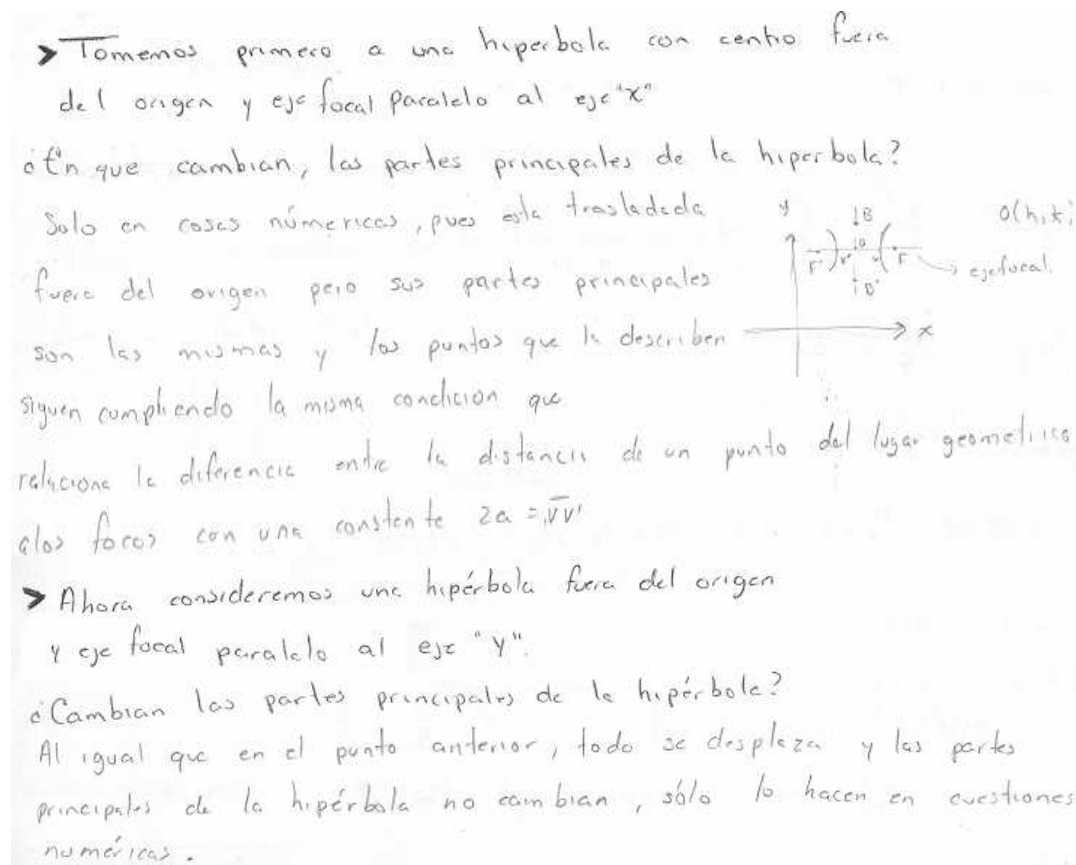 > Tomemos primero a una hiperbola con centro fuera
del origen y eje focal paralelo al eje "x"
¿En que cambian, las partes principales de la hiperbola?
Solo en cosas númericas, pues esta trasladada
fuera del origen pero sus partes principales
son las mismas y los puntos que la describen
siguen cumpliendo la misma condición que
relaciona la diferencia entre la distancia de un punto del lugar geometrico
a los focos con una constante 2a = VV'
y
B
O(h,k)
F' V' O V F
eje focal.
B'
x
> Ahora consideremos una hipérbola fuera del origen
y eje focal paralelo al eje "y".
¿Cambian las partes principales de la hipérbola?
Al igual que en el punto anterior, todo se desplaza y las partes
principales de la hipérbola no cambian, sólo lo hacen en cuestiones
numéricas.